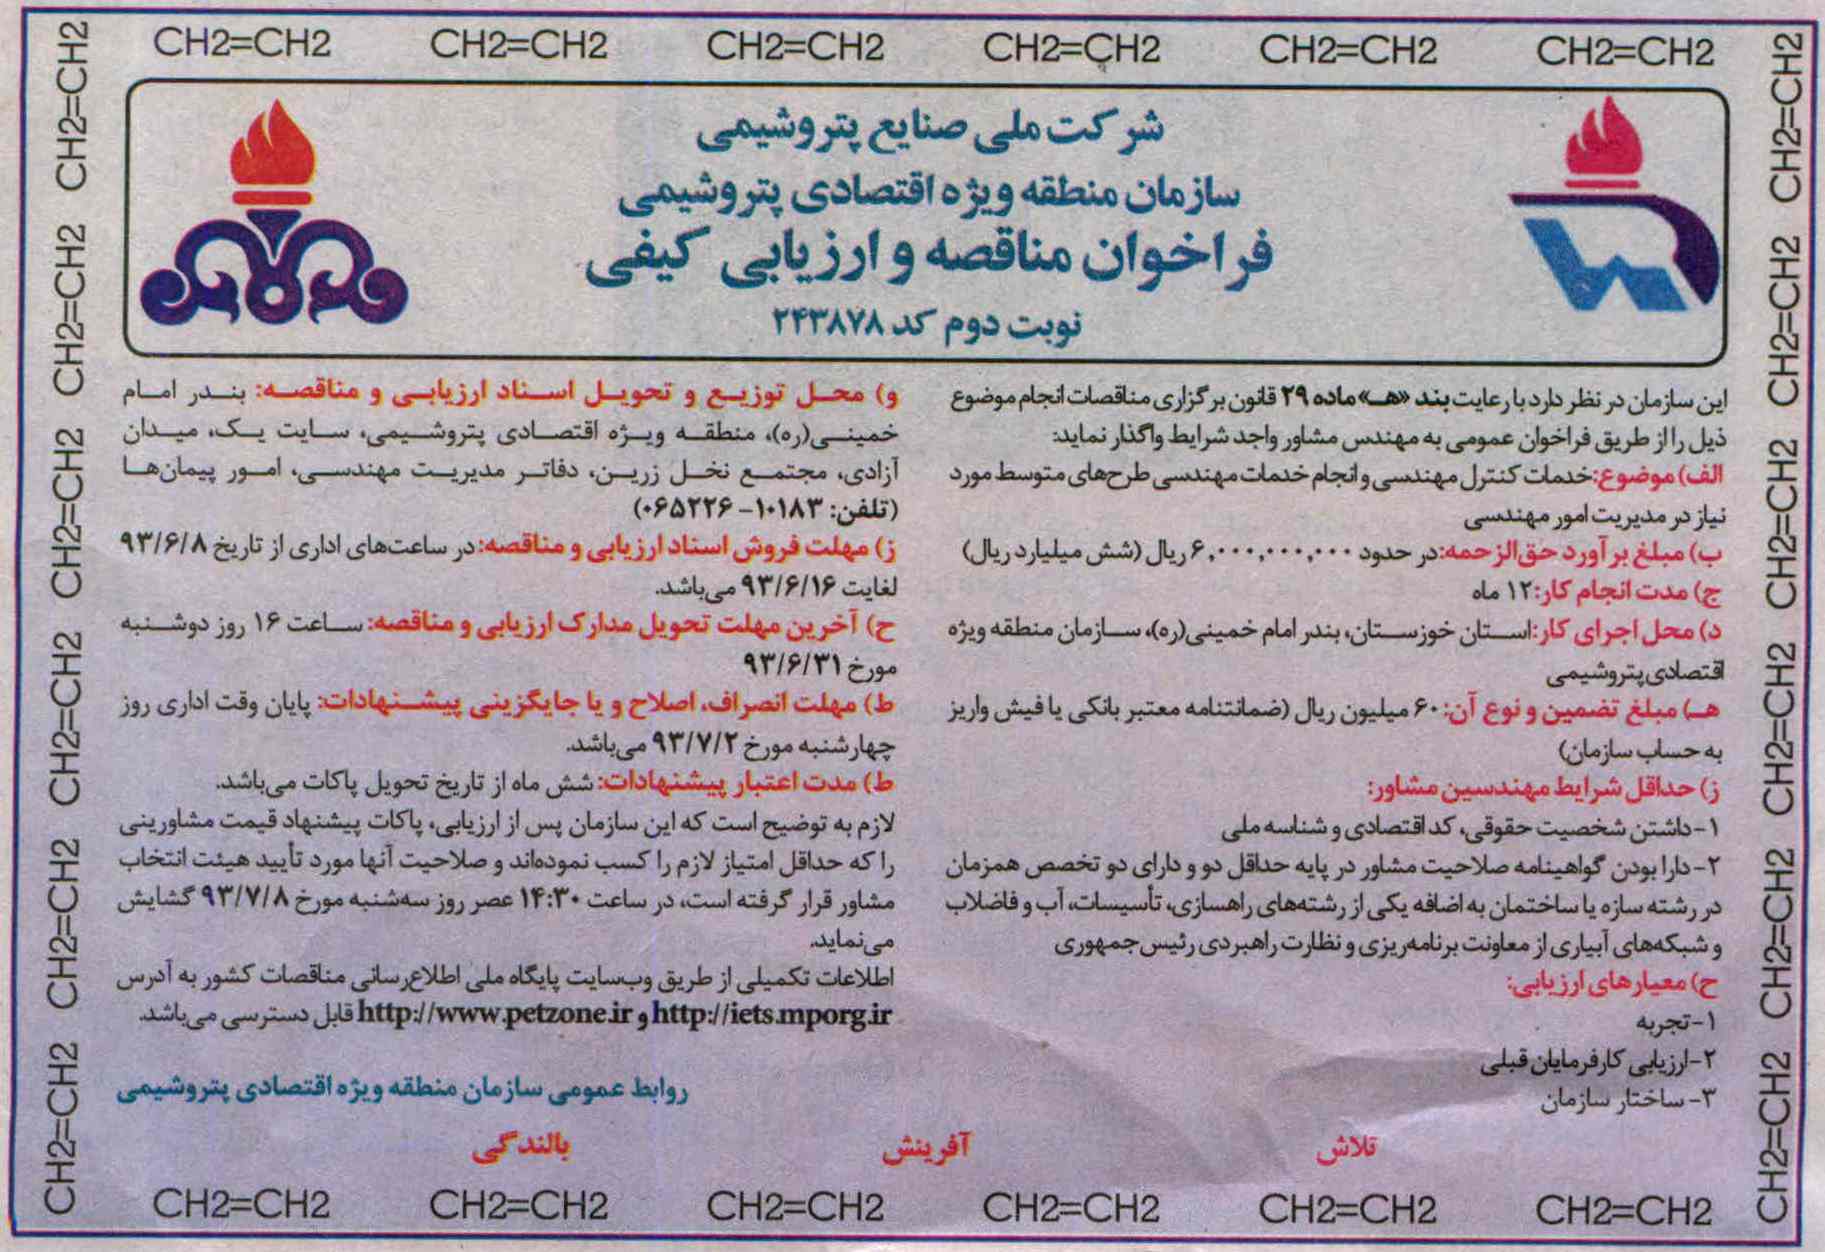 CH2=CH2 CH2=CH2 CH2=CH2 CH2=CH2 CH2=CH2 CH2=CH2
شرکت ملی صنایع پتروشیمی
سازمان منطقه ویژه اقتصادی پتروشیمی
فراخوان مناقصه و ارزیابی کیفی
نوبت دوم کد ۲۴۳۸۷۸
این سازمان در نظر دارد با رعایت بند «هـ» ماده ۲۹ قانون برگزاری مناقصات انجام موضوع
ذیل را از طریق فراخوان عمومی به مهندس مشاور واجد شرایط واگذار نماید:
الف) موضوع: خدمات کنترل مهندسی و انجام خدمات مهندسی طرح‌های متوسط مورد
نیاز در مدیریت امور مهندسی
ب) مبلغ برآورد حق‌الزحمه: در حدود ۶,۰۰۰,۰۰۰,۰۰۰ ریال (شش میلیارد ریال)
ج) مدت انجام کار: ۱۲ ماه
د) محل اجرای کار: استان خوزستان، بندر امام خمینی(ره)، سازمان منطقه ویژه
اقتصادی پتروشیمی
هـ) مبلغ تضمین و نوع آن: ۶۰ میلیون ریال (ضمانتنامه معتبر بانکی یا فیش واریز
به حساب سازمان)
ز) حداقل شرایط مهندسین مشاور:
۱-داشتن شخصیت حقوقی، کد اقتصادی و شناسه ملی
۲-دارا بودن گواهینامه صلاحیت مشاور در پایه حداقل دو و دارای دو تخصص همزمان
در رشته سازه یا ساختمان به اضافه یکی از رشته‌های راهسازی، تأسیسات، آب و فاضلاب
و شبکه‌های آبیاری از معاونت برنامه‌ریزی و نظارت راهبردی رئیس‌جمهوری
ح) معیارهای ارزیابی:
۱-تجربه
۲-ارزیابی کارفرمایان قبلی
۳- ساختار سازمان
و) محل توزیع و تحویل اسناد ارزیابی و مناقصه: بندر امام
خمینی(ره)، منطقه ویژه اقتصادی پتروشیمی، سایت یک، میدان
آزادی، مجتمع نخل زرین، دفاتر مدیریت مهندسی، امور پیمان‌ها
(تلفن: ۱۰۱۸۳-۰۶۵۲۲۶)
ز) مهلت فروش اسناد ارزیابی و مناقصه: در ساعت‌های اداری از تاریخ ۹۳/۶/۸
لغایت ۹۳/۶/۱۶ می‌باشد.
ح) آخرین مهلت تحویل مدارک ارزیابی و مناقصه: ساعت ۱۶ روز دوشنبه
مورخ ۹۳/۶/۳۱
ط) مهلت انصراف، اصلاح و یا جایگزینی پیشنهادات: پایان وقت اداری روز
چهارشنبه مورخ ۹۳/۷/۲ می‌باشد.
ط) مدت اعتبار پیشنهادات: شش ماه از تاریخ تحویل پاکات می‌باشد.
لازم به توضیح است که این سازمان پس از ارزیابی، پاکات پیشنهاد قیمت مشاورینی
را که حداقل امتیاز لازم را کسب نموده‌اند و صلاحیت آنها مورد تأیید هیئت انتخاب
مشاور قرار گرفته است، در ساعت ۱۴:۳۰ عصر روز سه‌شنبه مورخ ۹۳/۷/۸ گشایش
می‌نماید.
اطلاعات تکمیلی از طریق وب‌سایت پایگاه ملی اطلاع‌رسانی مناقصات کشور به آدرس
http://iets.mporg.ir و http://www.petzone.ir قابل دسترسی می‌باشد.
روابط عمومی سازمان منطقه ویژه اقتصادی پتروشیمی
تلاش آفرینش بالندگی
CH2=CH2 CH2=CH2 CH2=CH2 CH2=CH2 CH2=CH2 CH2=CH2
CH2=CH2 CH2=CH2 CH2=CH2 CH2=CH2 CH2=CH2 CH2=CH2
CH2=CH2 CH2=CH2 CH2=CH2 CH2=CH2 CH2=CH2 CH2=CH2